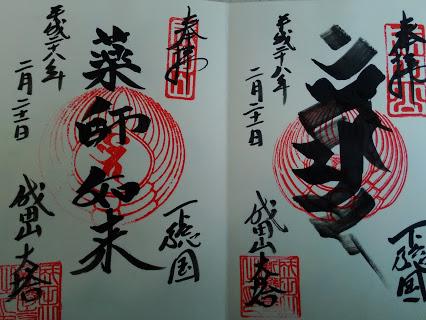 奉拝
下総国
薬師如来
平成二十八年
二月二十一日
成田山 大塔
奉拝
下総国
平成二十八年
二月二十一日
成田山 大塔